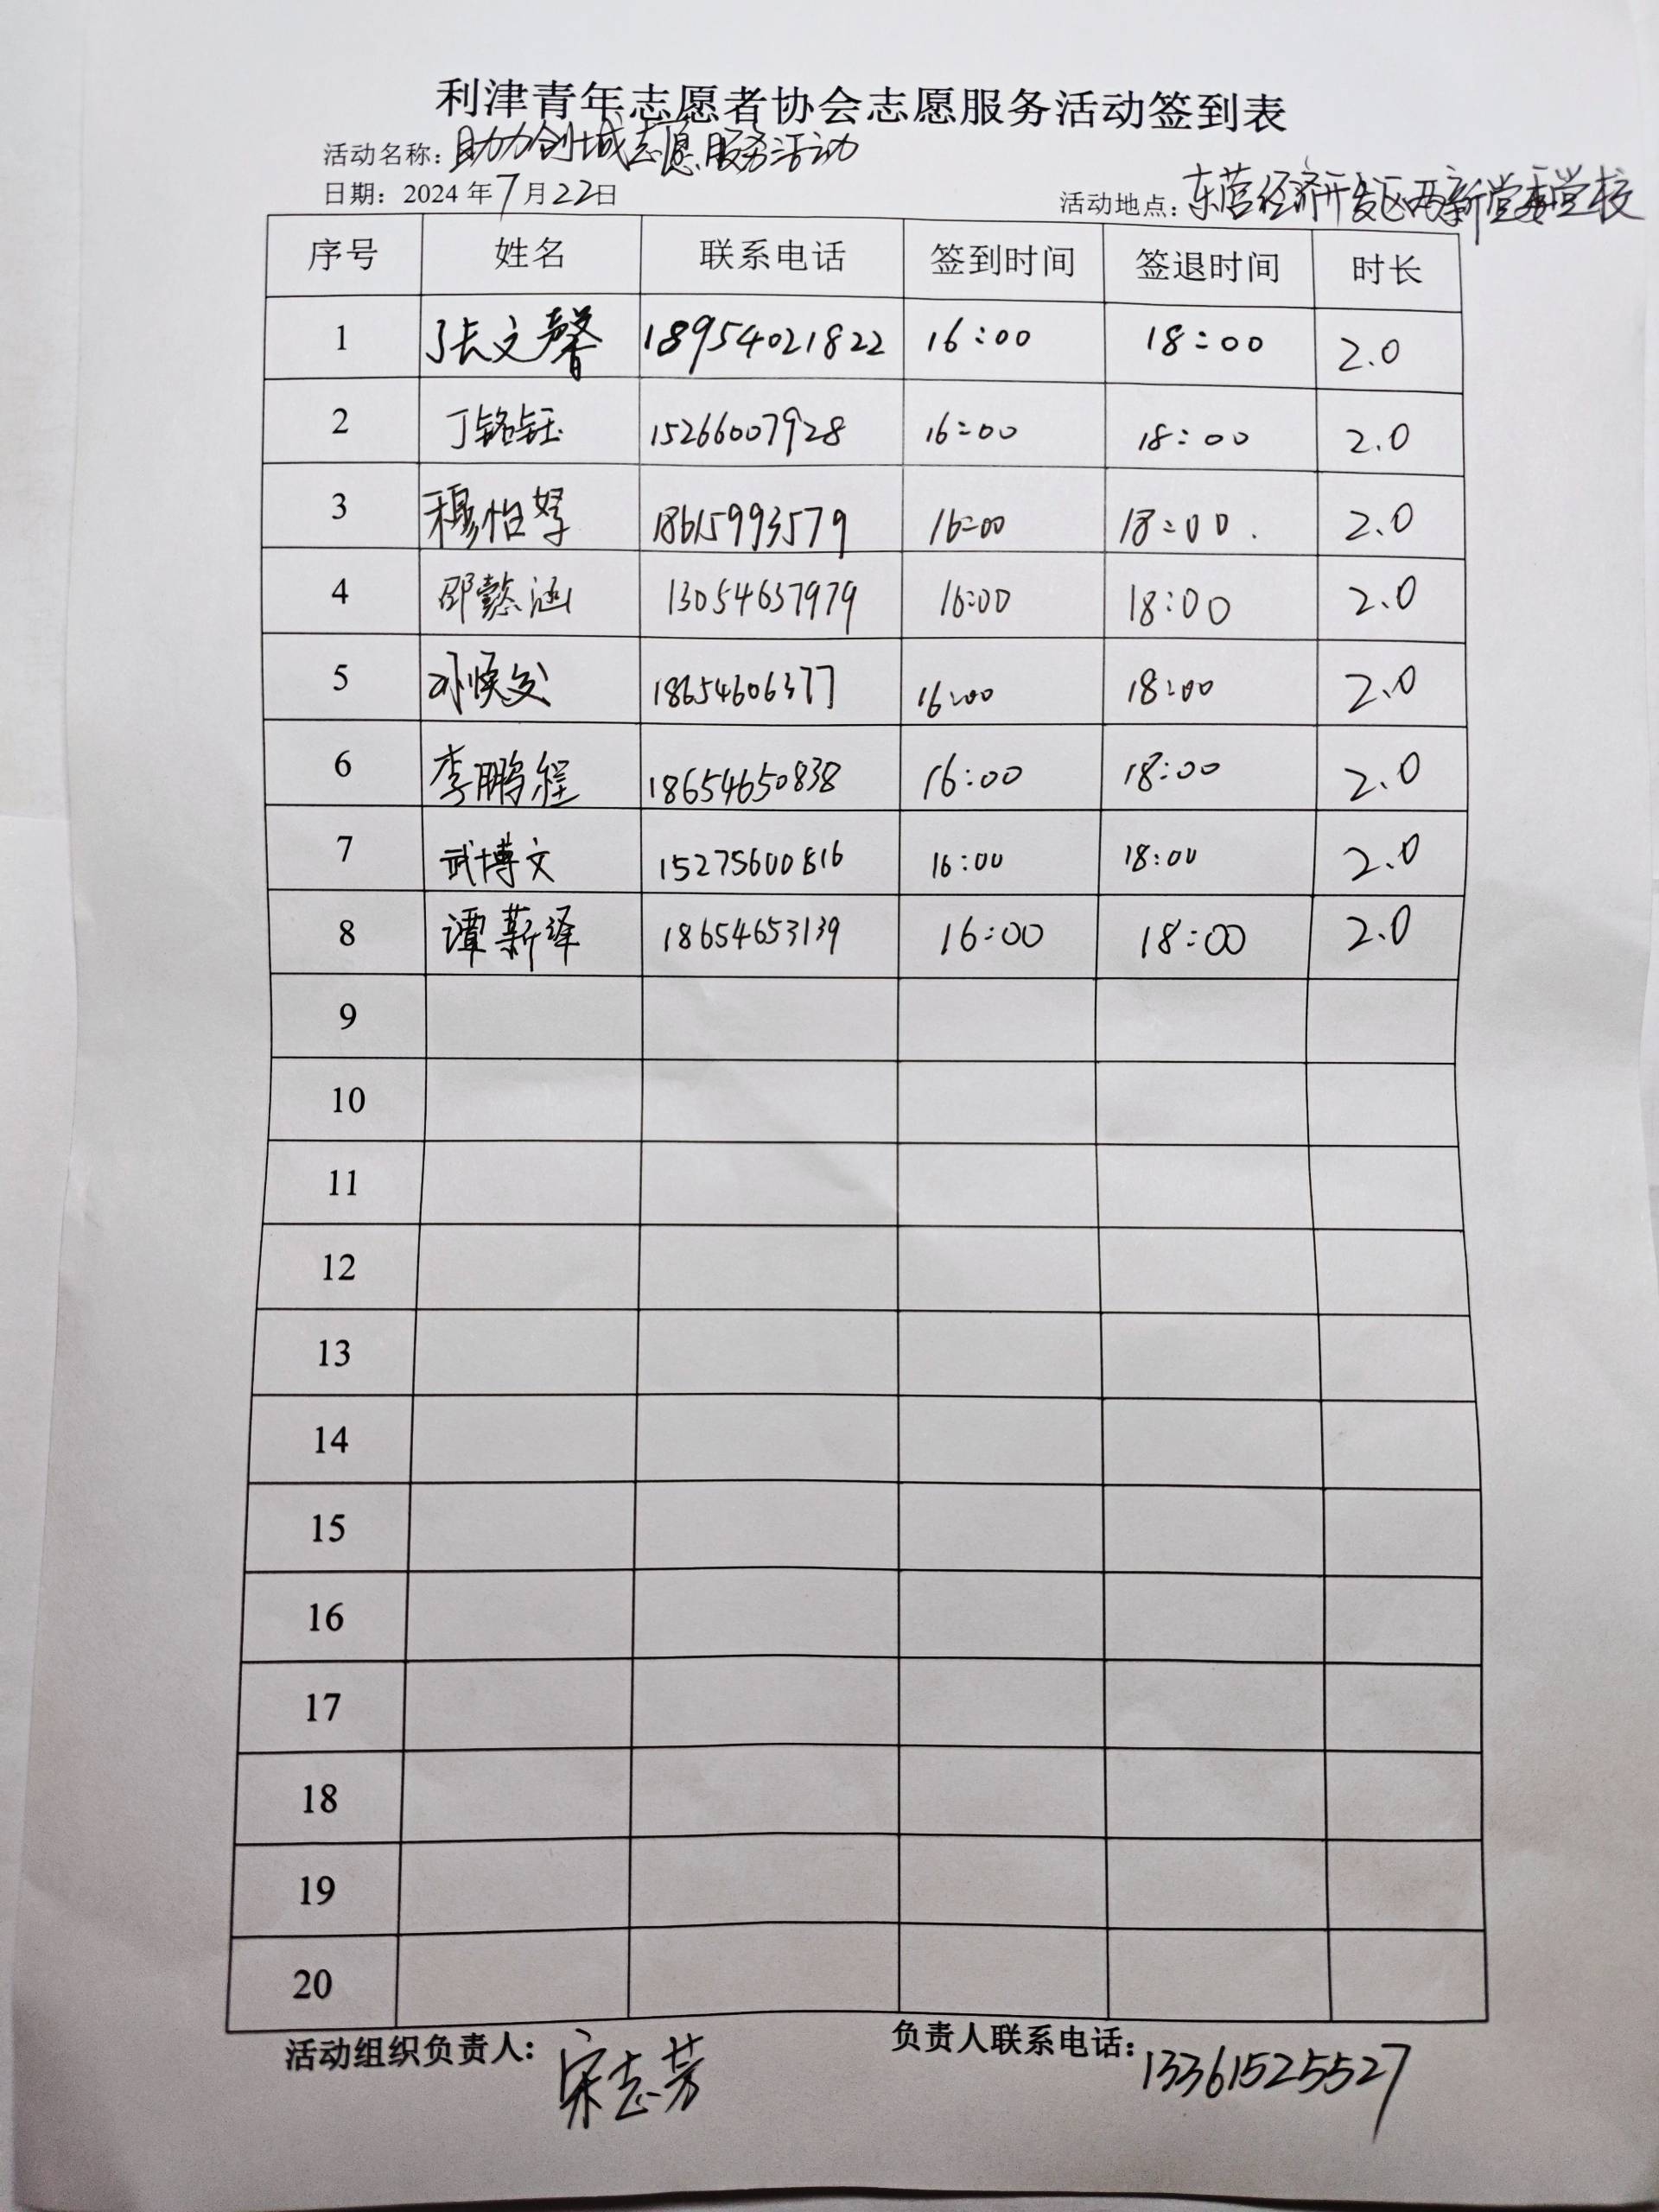 利津青年志愿者协会志愿服务活动签到表
活动名称：助力创城志愿服务活动
日期：2024年7月22日 活动地点：东营经济开发区两新党委党校
序号 姓名 联系电话 签到时间 签退时间 时长
1 张文馨 18954021822 16:00 18:00 2.0
2 丁铭钰 15266007928 16:00 18:00 2.0
3 穆怡婷 18615993579 16:00 18:00. 2.0
4 邵懿涵 13054637979 16:00 18:00 2.0
5 18654606377 16:00 18:00 2.0
6 李鹏程 18654650838 16:00 18:00 2.0
7 武博文 15275600816 16:00 18:00 2.0
8 谭薪泽 18654653139 16:00 18:00 2.0
9
10
11
12
13
14
15
16
17
18
19
20
活动组织负责人：宋志芳 负责人联系电话：13361525527